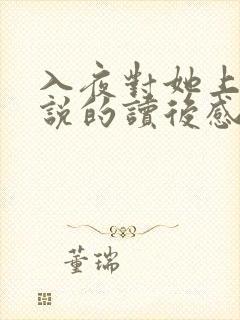 入夜對她上
說的讀後感
董瑞